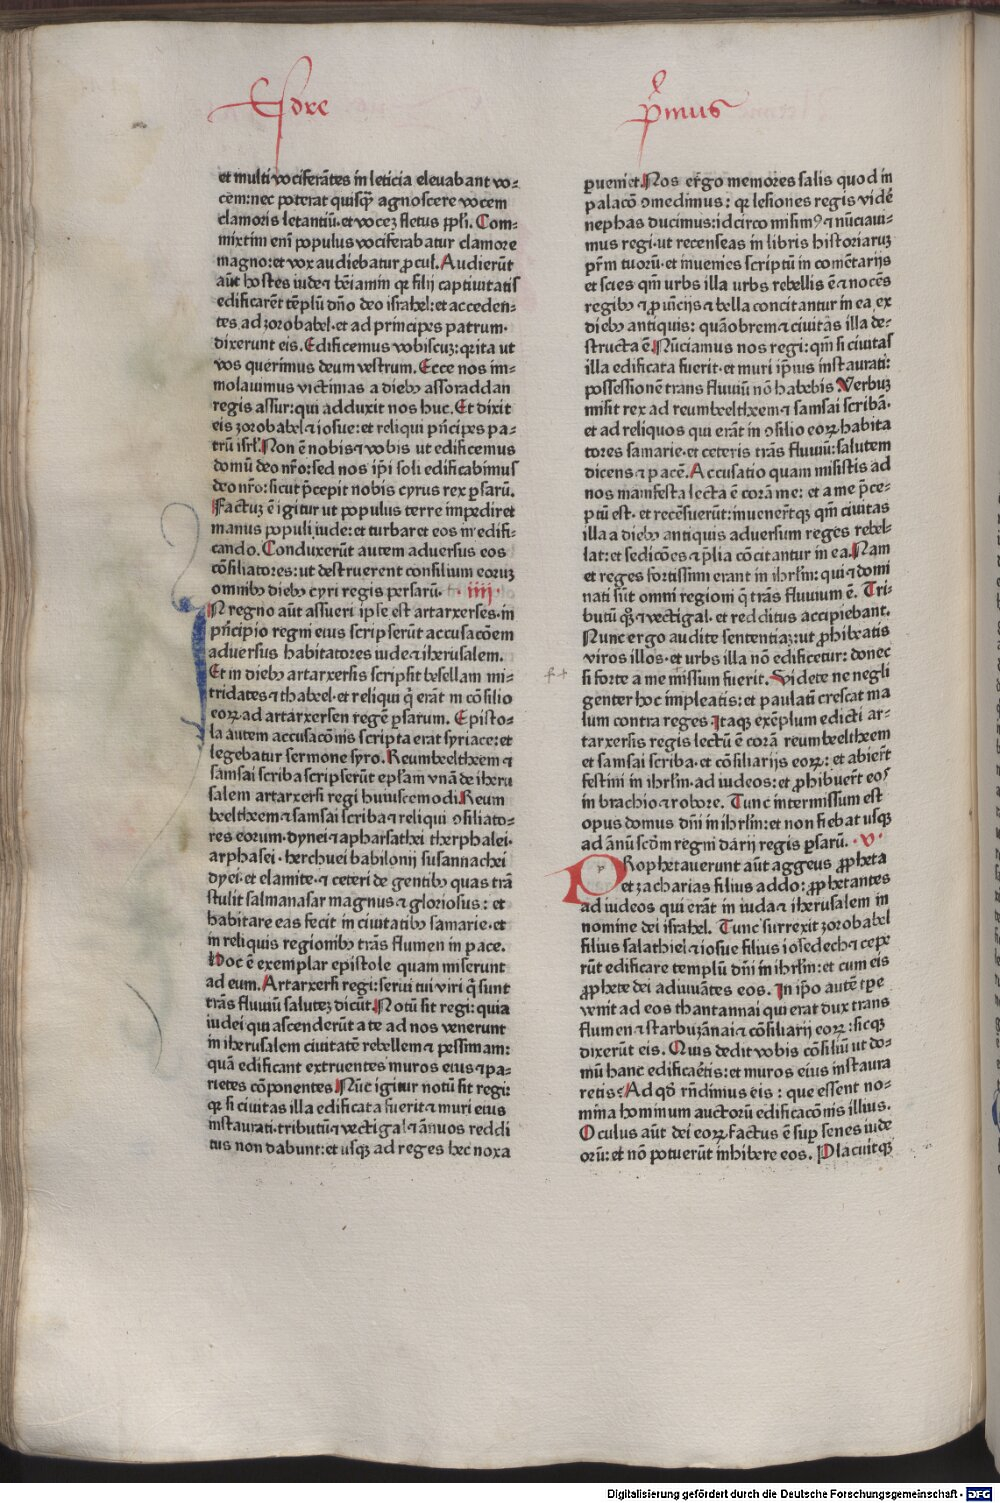 Esdre
p̄mus
et multi vociferātes in leticia eleuabant vo=
cem: nec poterat quisq̄ȝ agnoscere vocem
clamoris letantiū· et vocez fletus ppl̄i. Com=
mixtim enī populus vociferabatur clamore
magno: et vox audiebatur ꝓcul. Audierūt
aūt hostes iude ⁊ bēiamin qꝛ filij captiuitatis
edificarēt tēplū dn̄o deo israhel: et acceden=
tes ad zorobabel· et ad principes patrum·
dixerunt eis. Edificemus vobiscuz: qꝛ ita ut
vos querimus deum vestrum. Ecce nos im=
molauimus victimas a diebꝫ assoraddan
regis assur: qui adduxit nos huc. Et dixit
eis zorobabel ⁊ iosue: et reliqui pn̄cipes pa=
trū isrl̄. Non ē nobis ⁊ vobis ut edificemus
domū deo nr̄o: sed nos ip̄i soli edificabimus
deo nr̄o: sicut p̄cepit nobis cyrus rex ꝑsarū.
Factuz ē igitur ut populus terre impediret
manus populi iude: et turbaret eos in edifi=
cando. Conduxerūt autem aduersus eos
cōsiliatores: ut destruerent consilium eoruz
omnibꝫ diebꝫ cyri regis persarū. · iiii ·
IN regno aūt assueri ipse est artarxerses· in
pn̄cipio regni eius scripserūt accusacōem
aduersus habitatores iude ⁊ iherusalem.
Et in diebꝫ artarxersis scripsit besellam mi=
tridates ⁊ thabeel· et reliqui q̄ erāt in cōsilio
eoꝝ ad artarxersen regē ꝑsarum. Episto=
la autem accusacōnis scripta erat syriace: et
legebatur sermone syro. Reumbeeltheem ⁊
samsai scriba scripserūt ep̄lam vnā de iheru
salem artarxersi regi huiuscemodi. Reum
beeltheem ⁊ samsai scriba ⁊ reliqui ꝯsiliato=
res eorum· dynei ⁊ apharsathei therphalei·
arphasei· herchuei babilonij susannachei
dyei· et elamite· ⁊ ceteri de gentibꝫ quas trā
stulit salmanasar magnus ⁊ gloriosus: et
habitare eas fecit in ciuitatibꝫ samarie· et
in reliquis regionibꝫ trās flumen in pace.
Hoc ē exemplar epistole quam miserunt
ad eum. Artarxersi regi: serui tui viri q̄ sunt
trās fluuiū salutez dicūt. Notū sit regi: quia
iudei qui ascenderūt a te ad nos venerunt
in iherusalem ciuitatē rebellem ⁊ pessimam:
quā edificant extruentes muros eius ⁊ pa=
rietes cōponentes. Nūc igitur notū sit regi:
qꝛ si ciuitas illa edificata fuerit ⁊ muri eius
instaurati· tributū ⁊ vectigal ⁊ ānuos reddi
tus non dabunt: et usqꝫ ad reges hec noxa
ꝑueniet. Nos ergo memores salis quod in
palacō ꝯmedimus: qꝛ lesiones regis vidē
nephas ducimus: idcirco misimꝰ ⁊ nūciaui=
mus regi· ut recenseas in libris historiaruz
pr̄m tuorū· et inuenies scriptū in comētarijs
et scies qm̄ urbs illa urbs rebellis ē ⁊ nocēs
regibꝫ ⁊ ꝓuincijs ⁊ bella concitantur in ea ex
diebꝫ antiquis: quāobrem ⁊ ciuitas illa de=
structa ē. Nūciamus nos regi: qm̄ si ciuitas
illa edificata fuerit· et muri ip̄ius instaurati:
possessionē trans fluuiū nō habebis. Verbuz
misit rex ad reumbeeltheem ⁊ samsai scribā·
et ad reliquos qui erāt in ꝯsilio eoꝝ habita
tores samarie· et ceteris trās fluuiū: salutem
dicens ⁊ pacē. Accusatio quam misistis ad
nos manifesta lecta ē corā me: et a me p̄ce=
ptū est· et recēsuerūt: inuenert̄qꝫ qm̄ ciuitas
illa a diebꝫ antiquis aduersum reges rebel=
lat: et sedicōes ⁊ p̄lia cōcitantur in ea. Nam
et reges fortissimi erant in ihrl̄m: qui ⁊ domi
nati sūt omni regioni q̄ trās fluuium ē. Tri=
butū qꝫ ⁊ vectigal· et redditus accipiebant.
Nunc ergo audite sententiaz: ut ꝓhibeatis
viros illos· et urbs illa nō edificetur: donec
si forte a me missum fuerit. Videte ne negli
genter hoc impleatis: et paulatī crescat ma
lum contra reges. Itaqꝫ exēplum edicti ar=
tarxersis regis lectū ē corā reumbeeltheem
et samsai scriba· et cōsiliarijs eoꝝ: et abiert̄
festini in ihrl̄m· ad iudeos: et ꝓhibuert̄ eos
in brachio ⁊ robore. Tunc intermissum est
opus domus dn̄i in ihrl̄m: et non fiebat usqꝫ
ad ānū scd̄m regni darij regis ꝑsarū. · v ·
PRophetauerunt aūt aggeus ꝓpheta
et zacharias filius addo: ꝓphetantes
ad iudeos qui erāt in iuda ⁊ iherusalem in
nomine dei israhel. Tunc surrexit zorobabel
filius salathiel ⁊ iosue filius iosedech ⁊ cepe
rūt edificare templū dn̄i in ihrl̄m: et cum eis
ꝓphete dei adiuuātes eos. In ip̄o autē tp̄e
venit ad eos thantannai qui erat dux trans
flumen ⁊ starbuzānai ⁊ cōsiliarij eoꝝ: sicqꝫ
dixerūt eis. Quis dedit vobis cōsiliū ut do=
mū hanc edificaētis: et muros eius instaura
retis? Ad qd̄ rn̄dimus eis: que essent no=
mina hominum auctorū edificacōnis illius.
Oculus aūt dei eoꝝ factus ē suꝑ senes iude
orū: et nō potuerūt inhibere eos. Placuitqꝫ
Digitalisierung gefördert durch die Deutsche Forschungsgemeinschaft - DFG